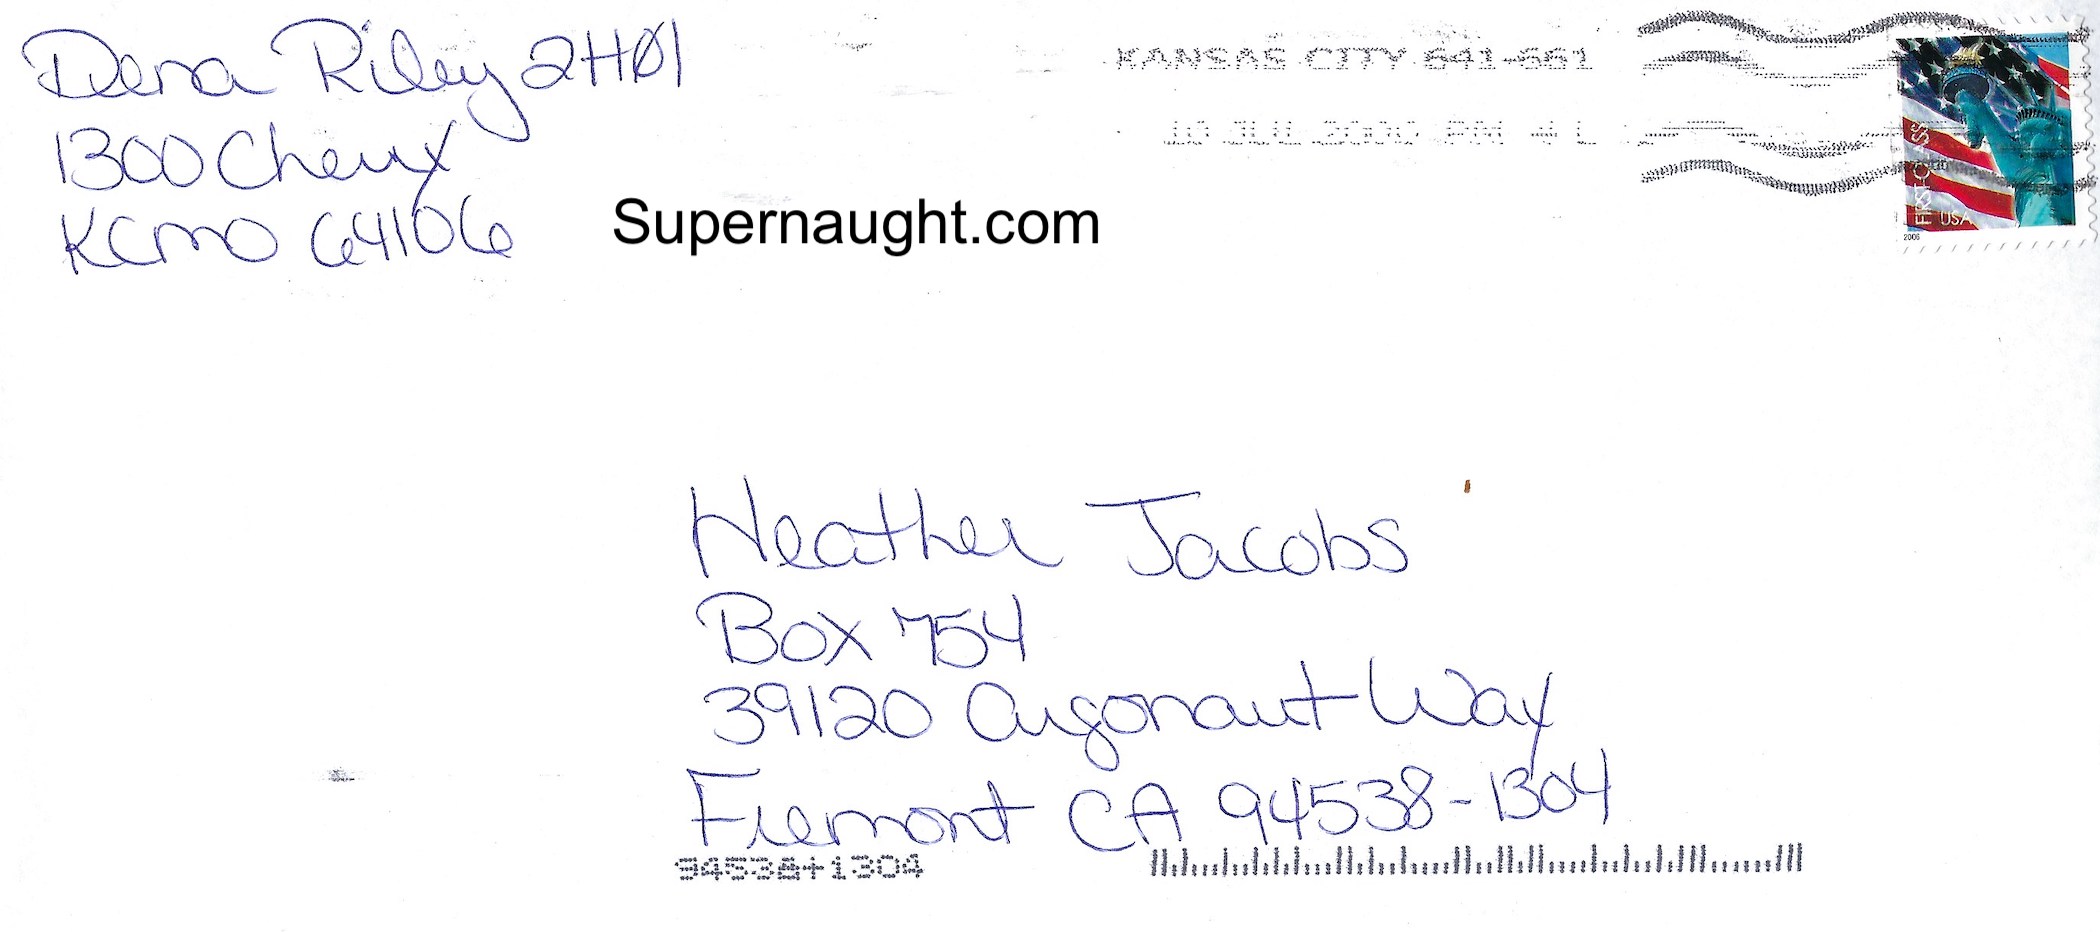 Dena Riley 2H01
1300 Cherry
KCMO 64106
Supernaught.com
KANSAS CITY 641-661
10 JUL PM 4 L
FIRST-CLASS
USA
2006
Heather Jacobs
Box 754
39120 Argonaut Way
Fremont CA 94538-1304
94538+1304